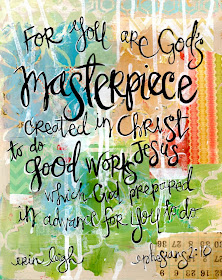 For you are God's
masterpiece
created in Christ
Jesus
to do
good works
which God prepared
in advance for you to do
erin leigh